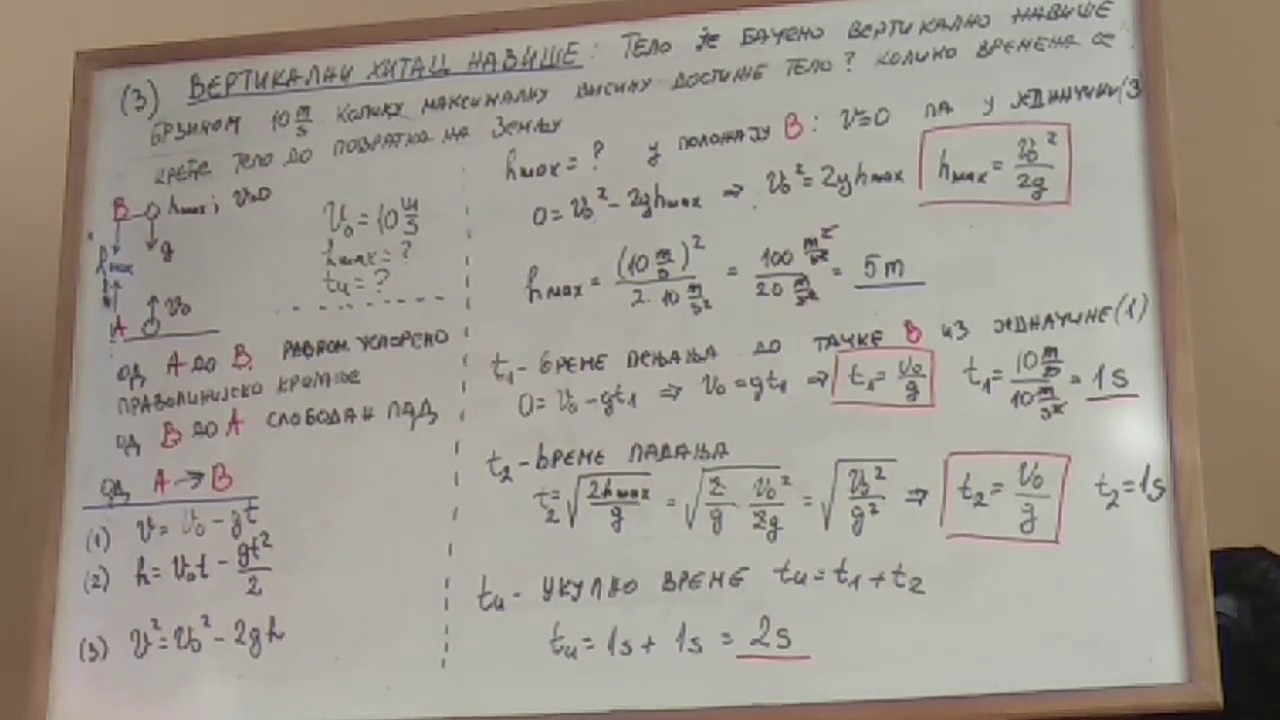 (3) ВЕРТИКАЛНИ ХИТАЦ НАВИШЕ: ТЕЛО ЈЕ БАЧЕНО ВЕРТИКАЛНО НАВИШЕ
БРЗИНОМ 10 m/s КОЛИКУ МАКСИМАЛНУ ВИСИНУ ДОСТИЖЕ ТЕЛО? КОЛИКО ВРЕМЕНА СЕ
КРЕЋЕ ТЕЛО ДО ПОВРАТКА НА ЗЕМЉУ
B hmax; v=0
g
hmax
v₀
A
v₀ = 10 m/s
hmax = ?
tu = ?
ОД A ДО B РАВНОМ. УСПОРЕНО
ПРАВОЛИНИЈСКО КРЕТАЊЕ
ОД B ДО A СЛОБОДАН ПАД
ОД A → B
(1) v = v₀ - gt
(2) h = v₀t - gt²/2
(3) v² = v₀² - 2gh
hmax = ? У ПОЛОЖАЈУ B: v=0 ПА У ЈЕДНАЧИНИ (3)
0 = v₀² - 2ghmax ⇒ v₀² = 2ghmax hmax = v₀²/2g
hmax = (10 m/s)²/2·10 m/s² = 100 m²/s²/20 m/s² = 5m
t₁ - ВРЕМЕ ПЕЊАЊА ДО ТАЧКЕ B ИЗ ЈЕДНАЧИНЕ (1)
0 = v₀ - gt₁ ⇒ v₀ = gt₁ ⇒ t₁ = v₀/g t₁ = 10 m/s/10 m/s² = 1s
t₂ - ВРЕМЕ ПАДАЊА
t₂ = √(2hmax/g) = √(2/g · v₀²/2g) = √(v₀²/g²) ⇒ t₂ = v₀/g t₂ = 1s
tu - УКУПНО ВРЕМЕ tu = t₁ + t₂
tu = 1s + 1s = 2s